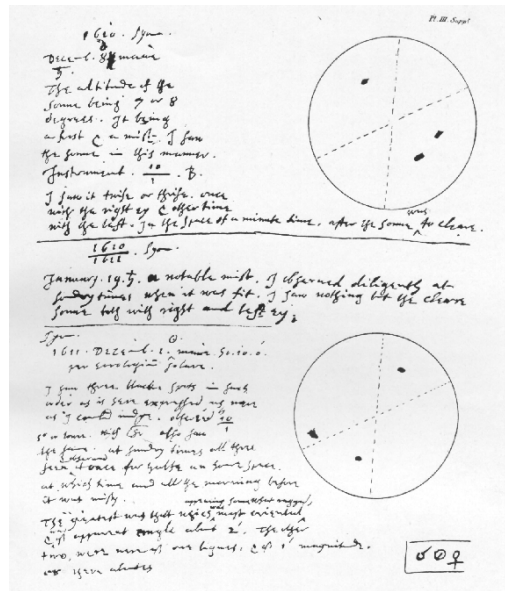 Pl. III. Suppl
1610. Syon.
Decemb. 8 mane
♄.
The altitude of the
sonne being 7 or 8
degrees. It being
a frost & a mist. I saw
the sonne in this manner.
Instrument. 10/1 . B.
I saw it twise or thrise. once
with the right ey & other time
with the left. In the space of a minute time. after the sonne was to cleare.
1610/1611 . Syon.
January. 19. ♄. a notable mist. I observed diligently at
sondry times when it was fit. I saw nothing but the cleare
sonne both with right and left ey.
Syon. ☉.
1611. Decemb. 1. mane. ho. 10. 0.
per horologium solare.
I saw three blacke spots in such
order as is here expressed as nere
as I could iudge. observed 10/1
also saw
at sondry times all three
seen at once for
at which time and all the morning before
it was misty.
appearing somewhat ragged,
The greatest was that which was most oriental
& of apparent angle about 2'. The other
two, were nere of one bignes, & of 1' magnitude.
or there aboutes
☌ ☉ ♀